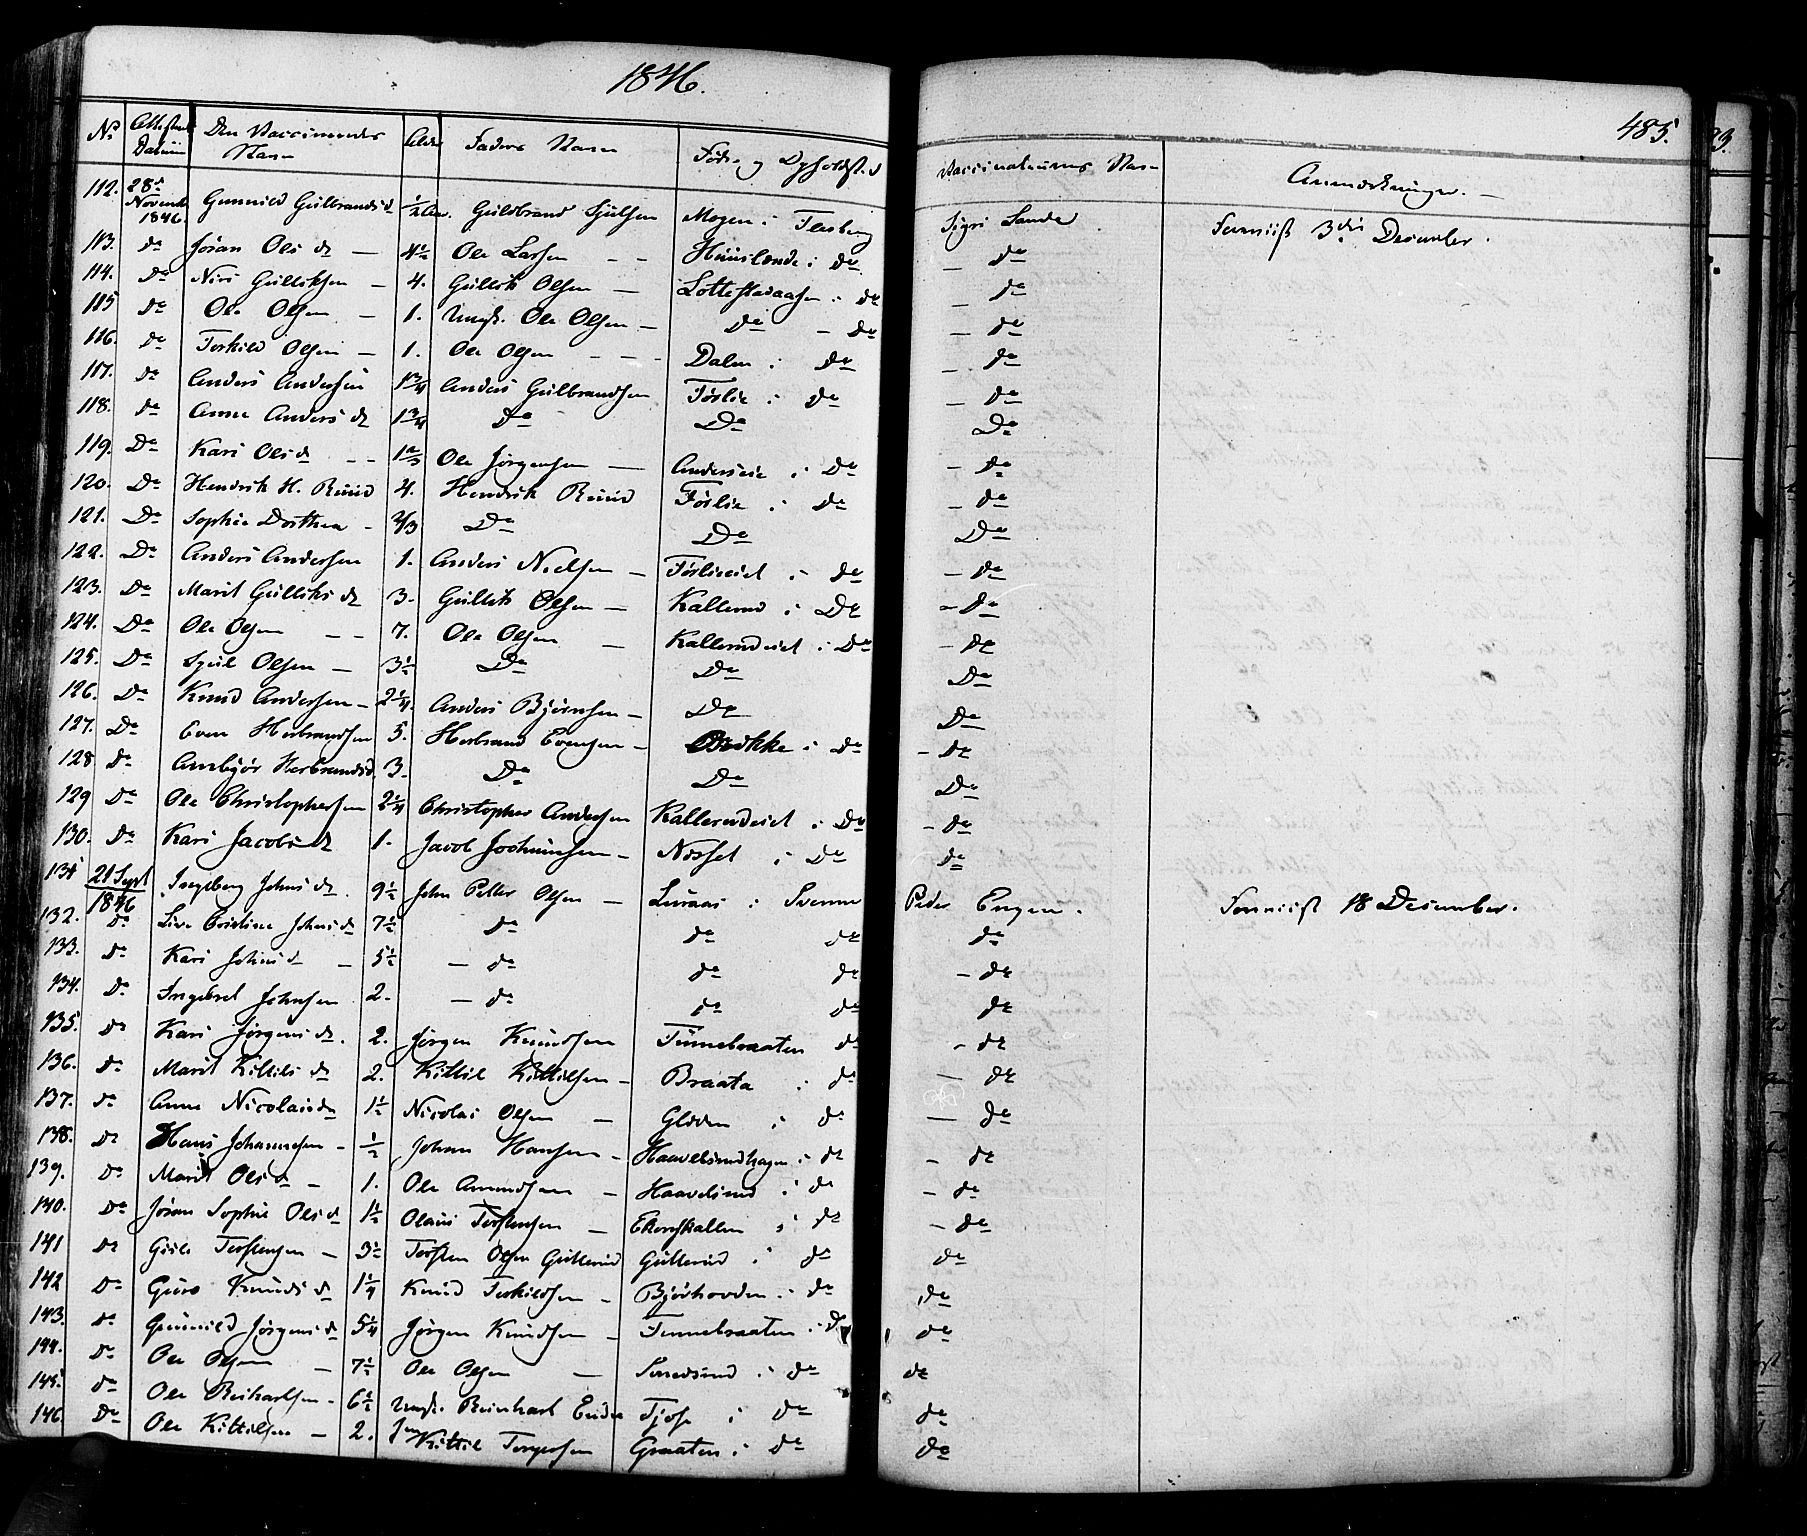 1846.
485.
No Attestens Datum Den Vaccineredes Navn Alder Faders Navn Føde- og Opholdsted Vaccinateurens Navn Anmærkninger.
112. 28de Novemb 1846. Gunnild Gulbrandsd 1/2 Aar. Guldbrand Sjulsen Mogen i Flesberg Sigri Sande 3die December.
113. do Jøran Olsdr 4 1/2 Ole Larsen Huuslende i do do
114. do Nils Gulliksen 4. Gullik Olsen i do do
115 do Ole Olsen 1. Ungk. Ole Olsen do do do
116. do Torkild Olsen 1. Ole Olsen Dalen i do do
117. do Anders Andersen 1 3/4 Anders Gulbrandsen Følie i do do
118. do Anne Andersdr 1 3/4 Do Do Do
119. Do Kari Olsdr 1 2/3 Ole Jørgensen i do do
120. Do Hendrik H. Ruud 4. Hendrik Ruud Følie i do do
121. Do Sophie Dorthea 2/3 Do Do Do
122. Do Anders Andersen 1. Anders Nielsen i do do
123. Do Marit Gulliksdr 3. Gullik Olsen Kallerud i Do do
124. Do Ole Olsen 7. Ole Olsen Kallerudeiet i Do do
125. Do Sjul Olsen 3 1/2 Do Do Do
126. Do Knud Andersen 2 1/4. Anders Bjørnsen Do Do
127. Do Even Herbrandsen 5. Herbrand Evensen i do do
128. do Anbjør Herbrandsd. 3. Do Do Do
129 Do Ole Christophersen 2 1/4 Christopher Andersen Kallerudeiet i Do do
130. Do Kari Jacobsdr 1. Jacob Jochumsen i Do do
131 21 Sept 1846 Ingeborg Johnsdr. 9 1/2 John Peller Olsen Luraas i Svenne Peder Engen. 18 December.
132. do Live Cristine Johnsdr 7 1/2 do do do do
133. do Kari Johnsdr 5 1/2 do do do do
134. do Ingebret Johnsen 2. do do do do
135. do Kari Jørgensdr. 2. Jørgen Knudsen Tinnebraaten do do
136. do Marit Kittilsdr 2. Kittil Kittilsen Braata i do do
137. do Anne Nicolaidr 1 1/2 Nicolai Olsen i do do
138. Do Hans Johannesen 1/2 Johan Hansen Haavelsrudhagen i do do
139. Do Marit Olsdr 1. Ole Amundsen Haavelsrud i do do
140. Do Jøran Sophie Olsdr 1 1/2 Olaus Torstensen Ekornhallen i do do
141 Do Gisle Torstensen 3 1/2 Torsten Olsen Gullerud Gullerud i do do
142 Do Guro Knudsdr 1 1/4 Knud Torkildsen Bjørhovden i do do
143. do Gunnild Jørgensdr 5 1/4 Jørgen Knudsen Tinnebraaten i do do
144. Do Ole Olsen 7 1/2 Ole Olsen i do do
145. do Ole Reihartsen 6 1/2 Ungk. Reinhart i do do
146. Do Ole Kittilsen 2. Kittil Torgersen Graaten i do do